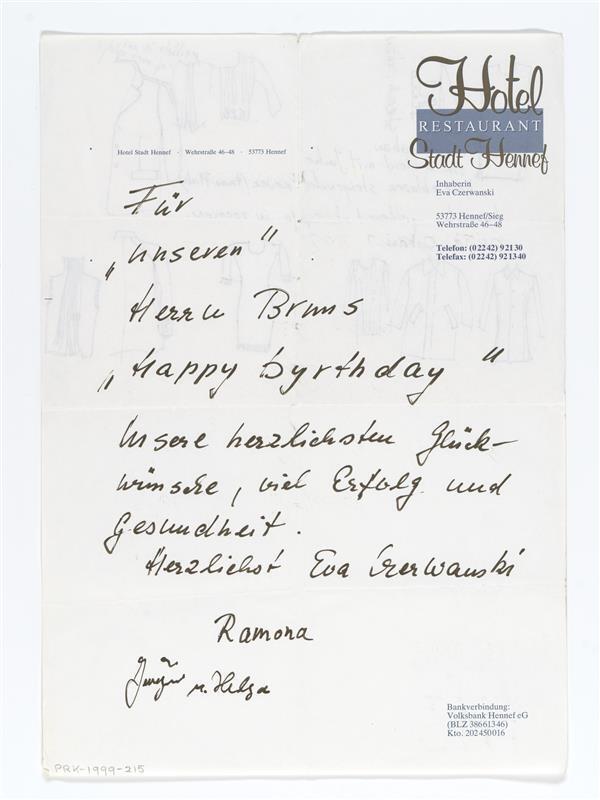 Hotel
RESTAURANT
Stadt Hennef
Hotel Stadt Hennef · Wehrstraße 46–48 · 53773 Hennef
Inhaberin
Eva Czerwanski
53773 Hennef/Sieg
Wehrstraße 46–48
Telefon: (0 22 42) 9 21 30
Telefax: (0 22 42) 92 13 40
Für
„unseren“
Herrn Bruns
„Happy byrthday“
Unsere herzlichsten Glück-
wünsche, viel Erfolg und
Gesundheit.
Herzlichst Eva Czerwanski
Ramona
u. Helga
Bankverbindung:
Volksbank Hennef eG
(BLZ 386 613 46)
Kto. 202 450 016
PRK-1999-215